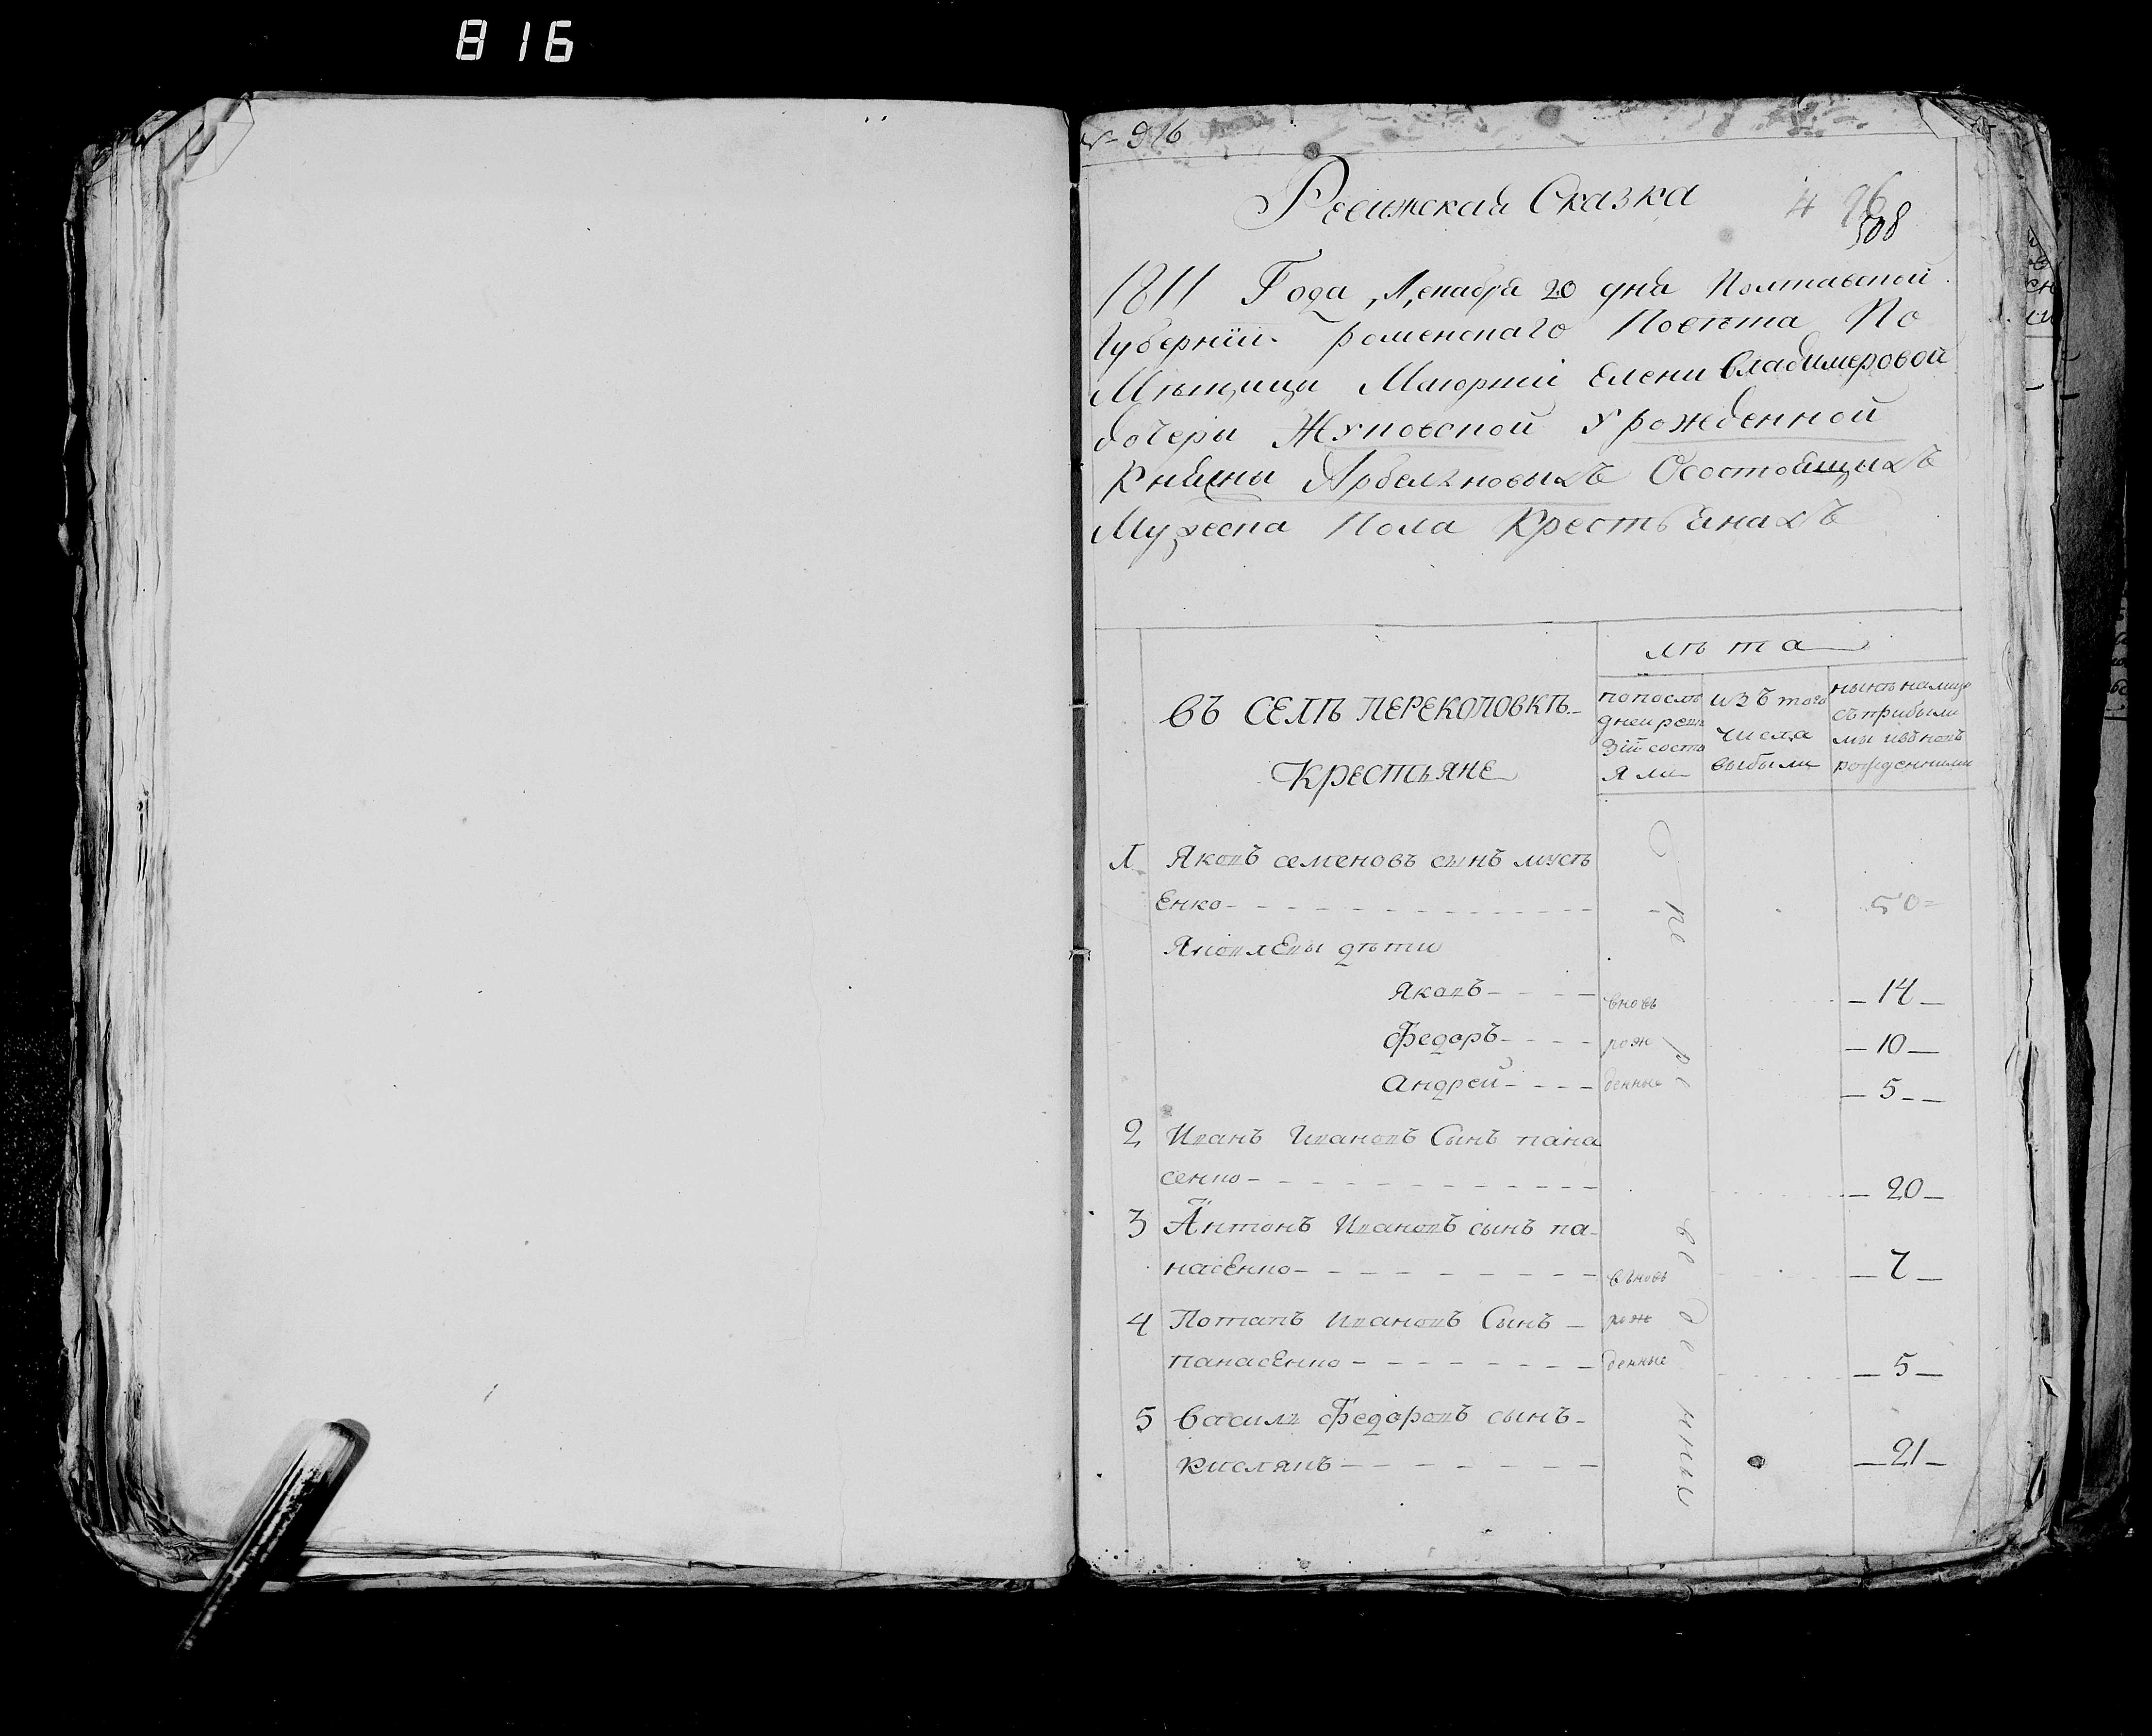 816
№ 916
Ревижская Сказка
4 96
508
1811 Года, Декабря 20 дня Полтавской
Губернїи роменскаго Повѣта По
Мѣщици Маіорши Елени Владимеровой
дочери Жуковской Урожденной
Княжны Осостоящихъ
Мужеска Пола Крестьянахъ
лѣта
въ селѣ перекоповкѣ
Крестьяне
попослѣ
дней реви
зїи состо
яли
изъ того
числа
выбыли
нынѣ налицо
съ прибыли
ми ивъновь
рожденними
1 Яковъ семеновъ сынъ мусѣ
Енко 50
Яковлевы дѣти
Яковъ вновь 14
Федоръ рож 10
Андрей денные 5
2 Иванъ Ивановъ Сынъ пана
сенко 20
3 Антонъ Ивановъ сынъ па-
насенко въновь 7
4 Потапъ Ивановъ Сынъ рож
панасенко денные 5
5 Василь Федоровъ сынъ
Кислякъ 21